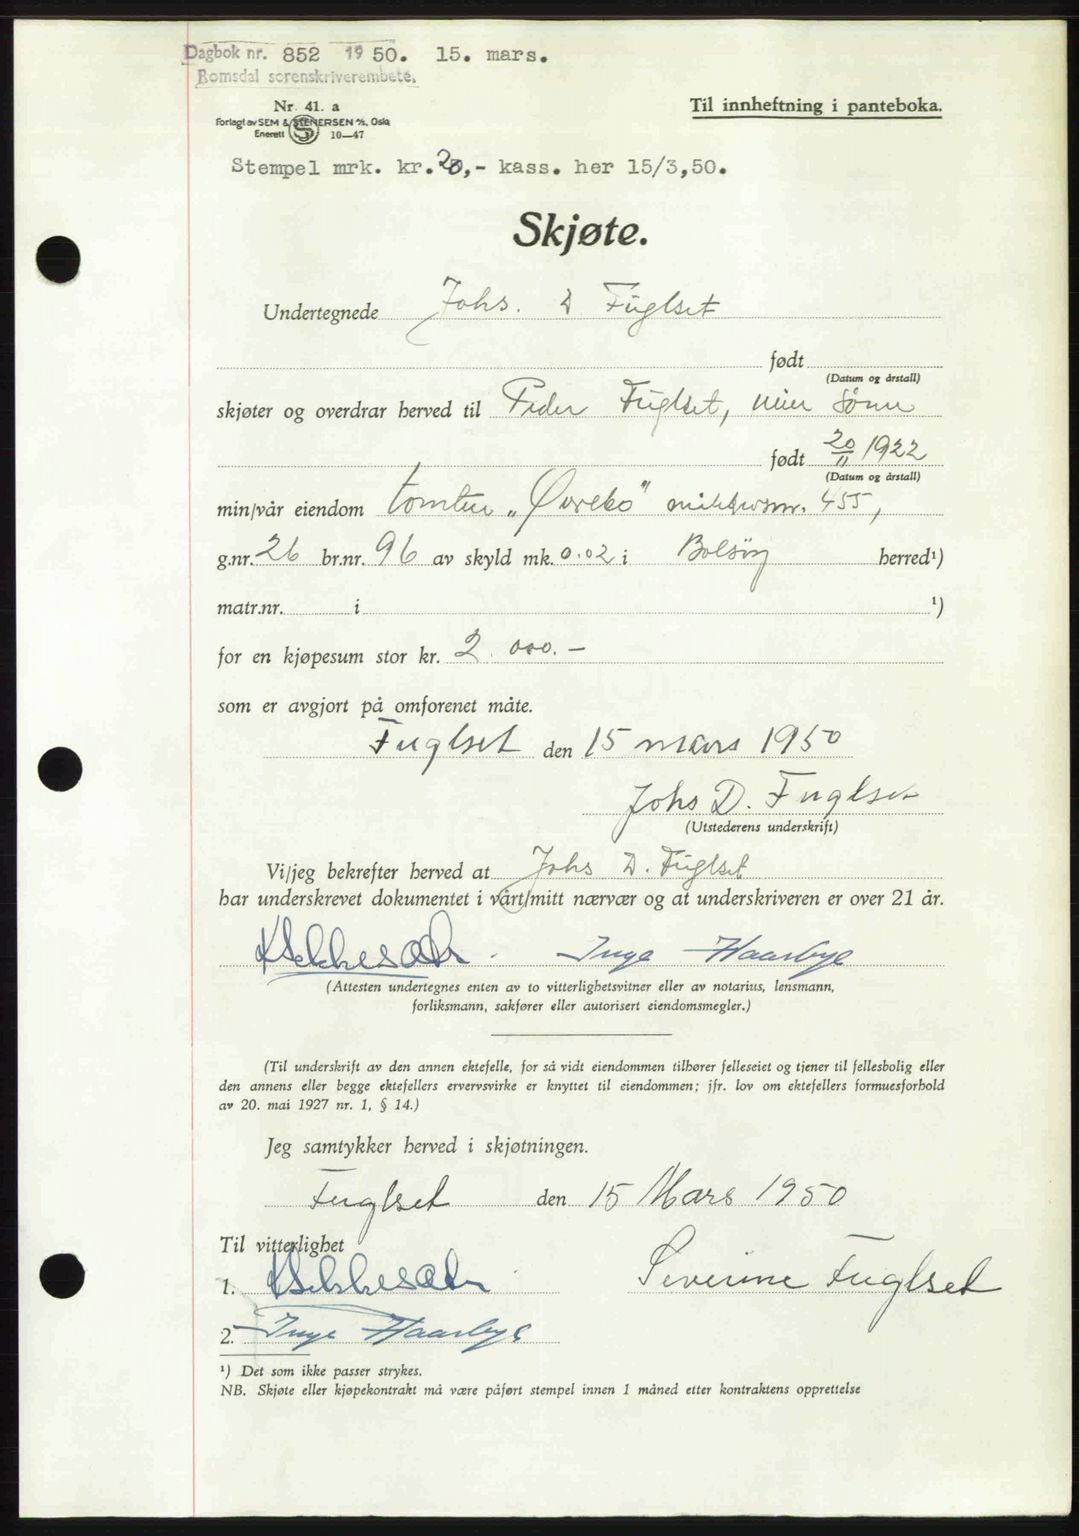 Dagbok nr. 852 1950. 15. mars.
Romsdal sorenskriverembete.
Nr. 41. a
Forlagt av SEM & STENERSEN A/S, Oslo
Enerett 10—47
Til innheftning i panteboka.
Stempel mrk. kr. 20,- kass. her 15/3,50.
Skjøte.
Undertegnede Johs. D Fuglset
født
(Datum og årstall)
skjøter og overdrar herved til Peder Fuglset, min sønn
født 20/11 1922
(Datum og årstall)
min/vår eiendom tomten „Øvrebø" 455,
g.nr. 26 br.nr. 96 av skyld mk. 0.02 i Bolsøy herred¹)
matr.nr. i ¹)
for en kjøpesum stor kr. 2 000.—
som er avgjort på omforenet måte.
Fuglset den 15 mars 1950
Johs D. Fuglset
(Utstederens underskrift)
Vi/jeg bekrefter herved at Johs D. Fuglset
har underskrevet dokumentet i vårt/mitt nærvær og at underskriveren er over 21 år.
Inga Haarbye
(Attesten undertegnes enten av to vitterlighetsvitner eller av notarius, lensmann,
forliksmann, sakfører eller autorisert eiendomsmegler.)
(Til underskrift av den annen ektefelle, for så vidt eiendommen tilhører felleseiet og tjener til fellesbolig eller
den annens eller begge ektefellers ervervsvirke er knyttet til eiendommen; jfr. lov om ektefellers formuesforhold
av 20. mai 1927 nr. 1, § 14.)
Jeg samtykker herved i skjøtningen.
Fuglset den 15 Mars 1950
Til vitterlighet
1. Severine Fuglset
2. Inga Haarbye
¹) Det som ikke passer strykes.
NB. Skjøte eller kjøpekontrakt må være påført stempel innen 1 måned etter kontraktens opprettelse